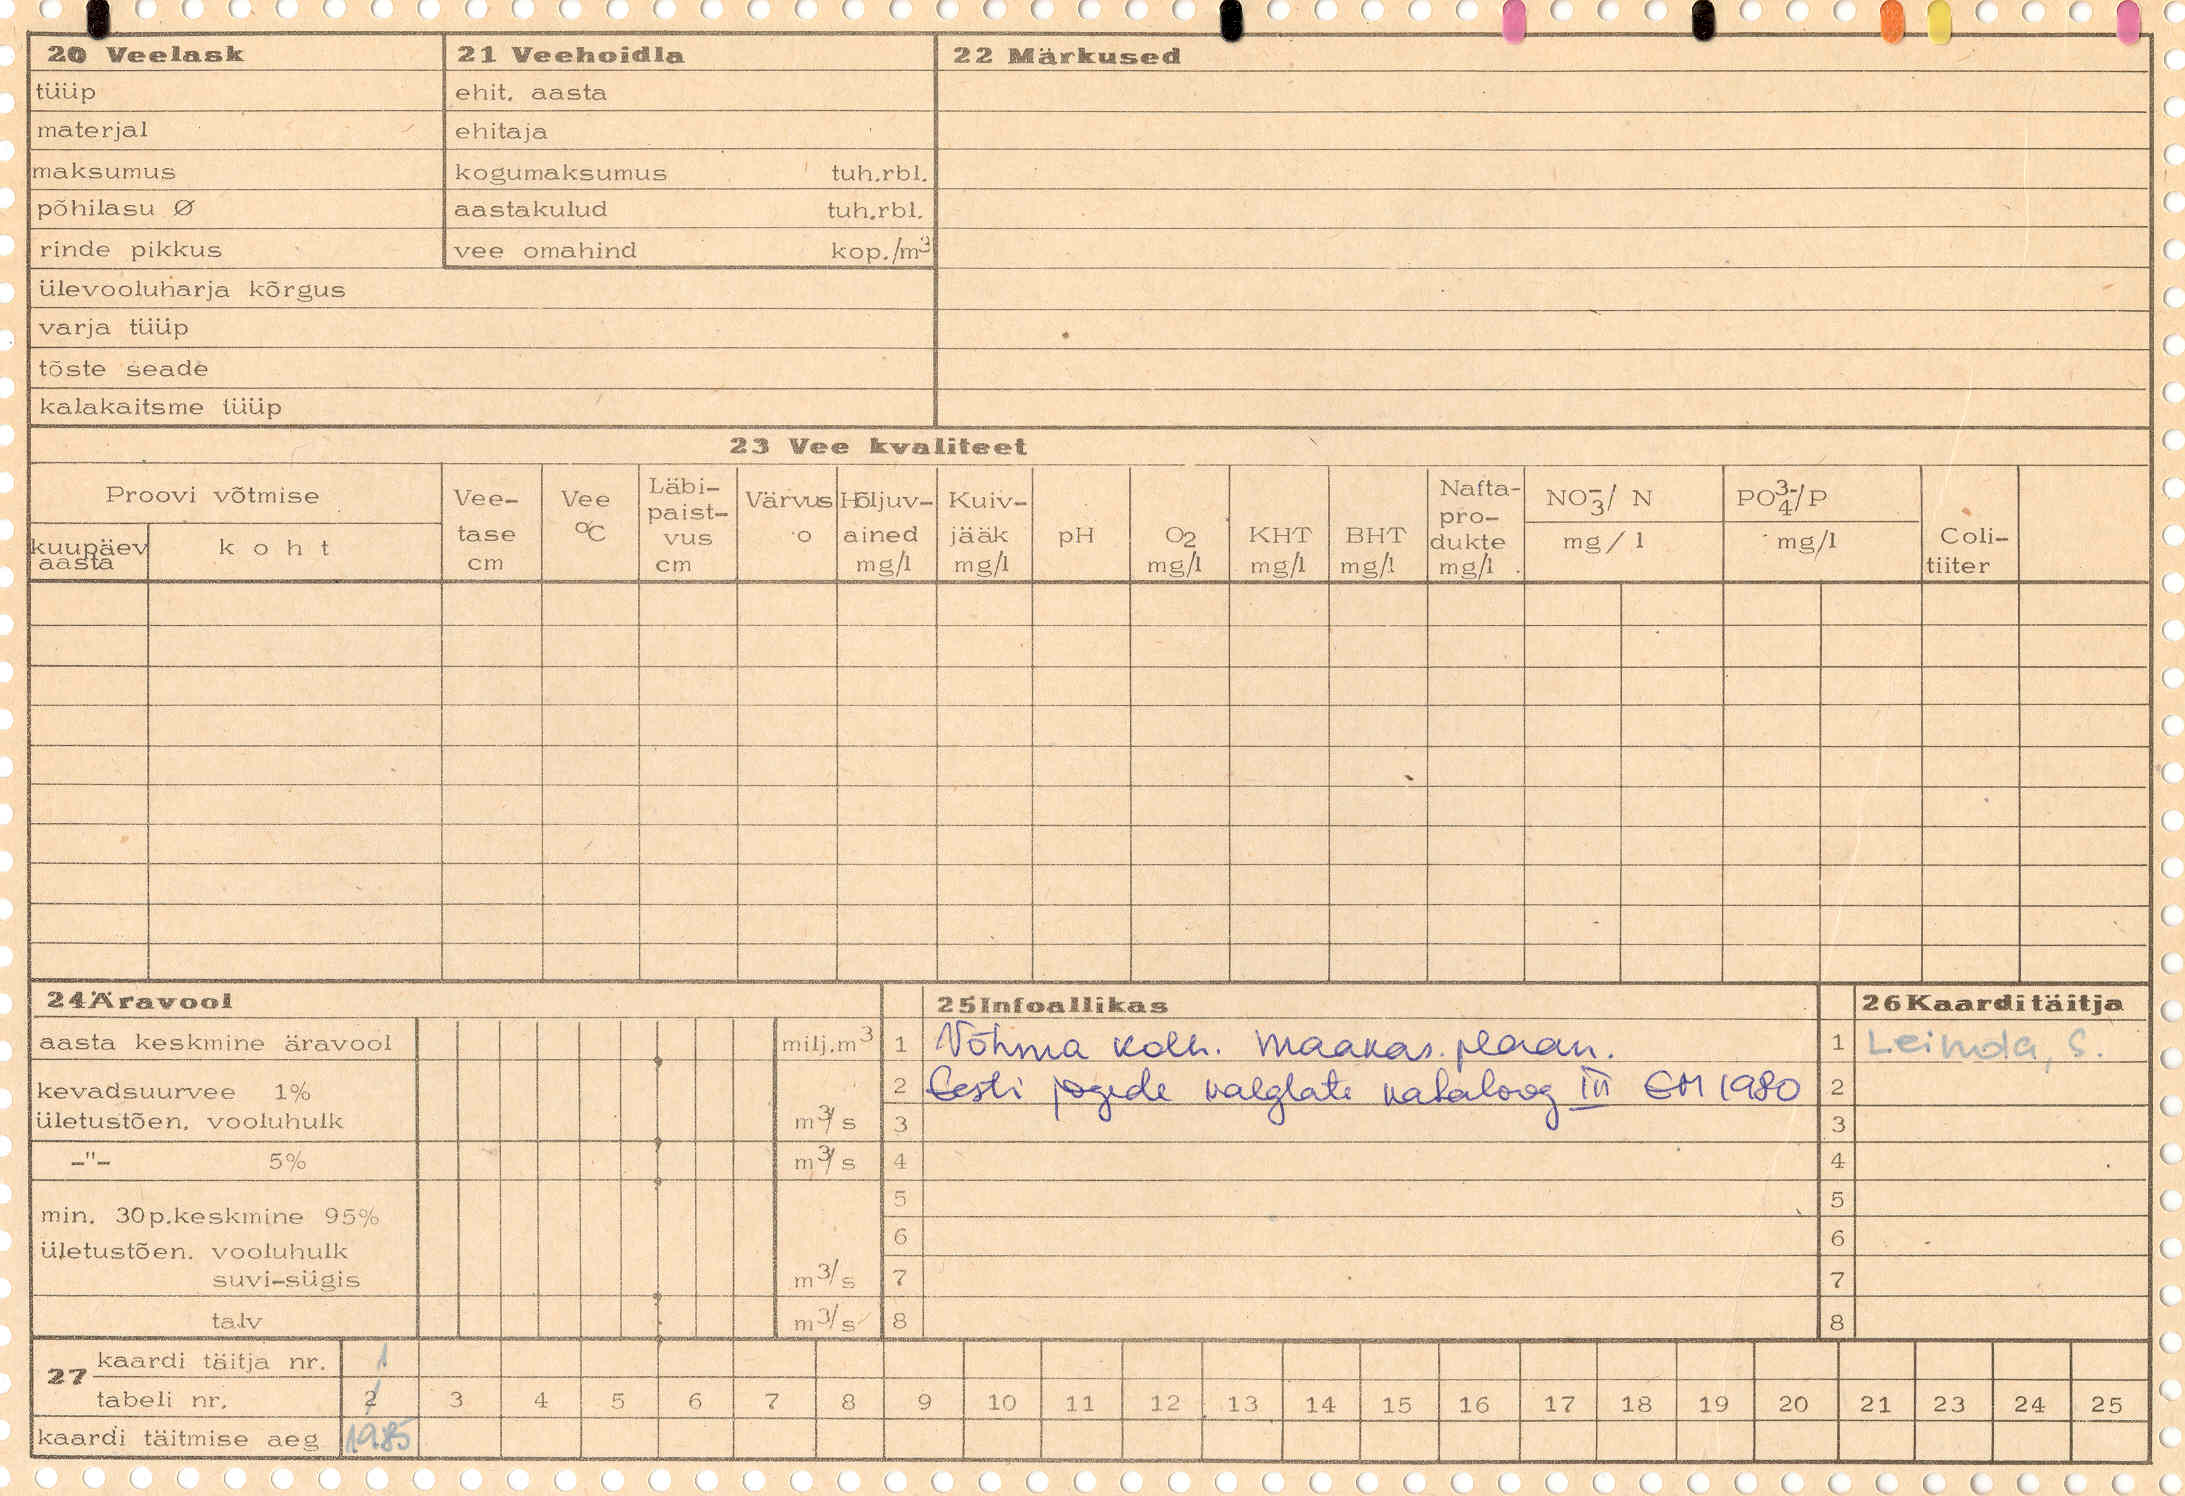 20 Veelask
tüüp
materjal
maksumus
põhilasu Ø
rinde pikkus
ülevooluharja kõrgus
varja tüüp
tõste seade
kalakaitsme tüüp
21 Veehoidla
ehit. aasta
ehitaja
kogumaksumus tuh.rbl.
aastakulud tuh.rbl.
vee omahind kop./m³
22 Märkused
23 Vee kvaliteet
Proovi võtmise
kuupäev aasta
koht
Vee-
tase
cm
Vee
°C
Läbi-
paist-
vus
cm
Värvus
o
Hõljuv-
ained
mg/l
Kuiv-
jääk
mg/l
pH
O₂
mg/l
KHT
mg/l
BHT
mg/l
Nafta-
pro-
dukte
mg/l
NO₃⁻/ N
mg/l
PO₄³⁻/P
mg/l
Coli-
tiiter
24 Äravool
aasta keskmine äravool milj.m³
kevadsuurvee 1%
ületustõen. vooluhulk m³/s
-"- 5% m³/s
min. 30p.keskmine 95%
ületustõen. vooluhulk
suvi-sügis m³/s
talv m³/s
25 Infoallikas
1 Võhma kolh. maakas. plaan.
2 Eesti jõgede valglate kataloog III EM 1980
3
4
5
6
7
8
26 Kaarditäitja
1 Leimda, S.
2
3
4
5
6
7
8
27 kaardi täitja nr. 1
tabeli nr. 2 3 4 5 6 7 8 9 10 11 12 13 14 15 16 17 18 19 20 21 23 24 25
kaardi täitmise aeg 1985